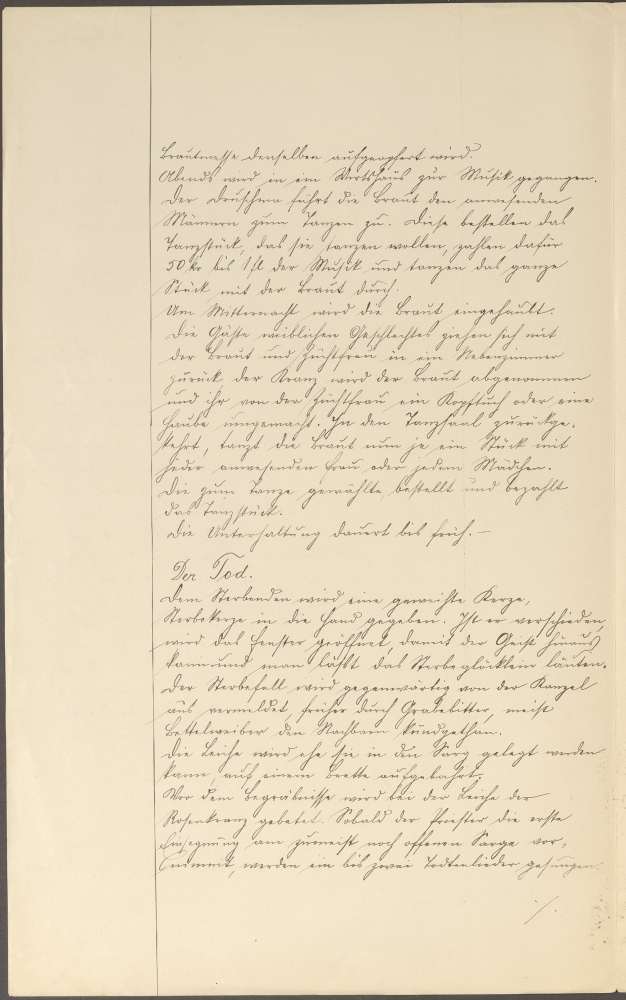 Brautmesse denselben aufgeopfert wird.
Abends wird in ein Wirtshaus zur Musik gegangen.
Der Druschma führt die Braut den anwesenden
Männern zum Tanzen zu. Diese bestellen das
Tanzstück, das sie tanzen wollen, zahlen dafür
50 kr bis 1 fl der Musik und tanzen das ganze
Stück mit der Braut durch.
Um Mitternacht wird die Braut eingehaubt.
Die Gäste weiblichen Geschlechtes ziehen sich mit
der Braut und Züchtfrau in ein Nebenzimmer
zurück, der Kranz wird der Braut abgenommen
und ihr von der Züchtfrau ein Kopftuch oder eine
Haube umgemacht. In den Tanzsaal zurückge-
kehrt, tanzt die Braut nun je ein Stück mit
jeder anwesenden Frau oder jedem Mädchen.
Die zum Tanze gewählte bestellt und bezahlt
das Tanzstück.
Die Unterhaltung dauert bis früh. –
Der Tod.
Dem Sterbenden wird eine geweihte Kerze,
Sterbekerze in die Hand gegeben. Ist er verschieden,
wird das Fenster geöffnet, damit der Geist hinaus
kann und man läßt das Sterbeglöcklein läuten.
Der Sterbefall wird gegenwärtig von der Kanzel
aus vermeldet, früher durch Grabebitter, meist
Bettelweiber den Nachbarn kundgethan.
Die Leiche wird ehe sie in den Sarg gelegt werden
kann, auf einem Brette aufgebahrt.
Vor dem Begräbnisse wird bei der Leiche der
Rosenkranz gebetet. Sobald der Priester die erste
Einsegnung am zumeist noch offenen Sarge vor-
nimmt, werden ein bis zwei Todtenlieder gesungen.
./.